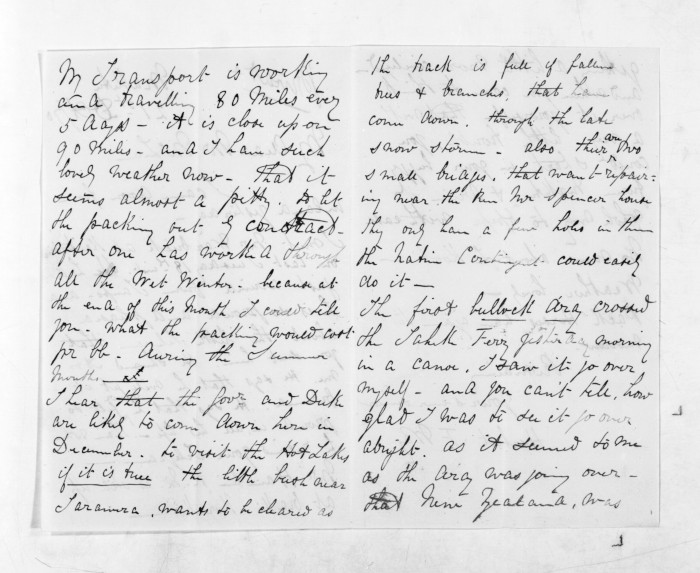 My Transport is working
and travelling 80 Miles every
5 days - it is close upon
90 miles - and I have such
lovely weather now - that it
seems almost a pitty. to let
the packing out by contract -
after one has worked through
all the Wet Winter - because at
the end of this Month I could tell
you - what the packing would cost
pr lb - during the Summer
months -
I hear that the Govr and Duke
are likely to come down here in
December. to visit the Hot Lakes
if it is true the little bush near
Taramera, wants to be cleared as
the track is full of fallen
trees & branches, that have
come down. through the late
snow storm - also their are two
small bridges, that want repair=
ing near the Revd Mr Spencer house
they only have a few holes in them
the Native Contingent could easily
do it -
The first bullock dray crossed
the Takiti Ferry yesterday morning
in a canoe, I saw it go over
myself - and you can't tell, how
glad I was to see it go over
alright. as it seemed to me
as the dray was going over -
that New Zealand, was